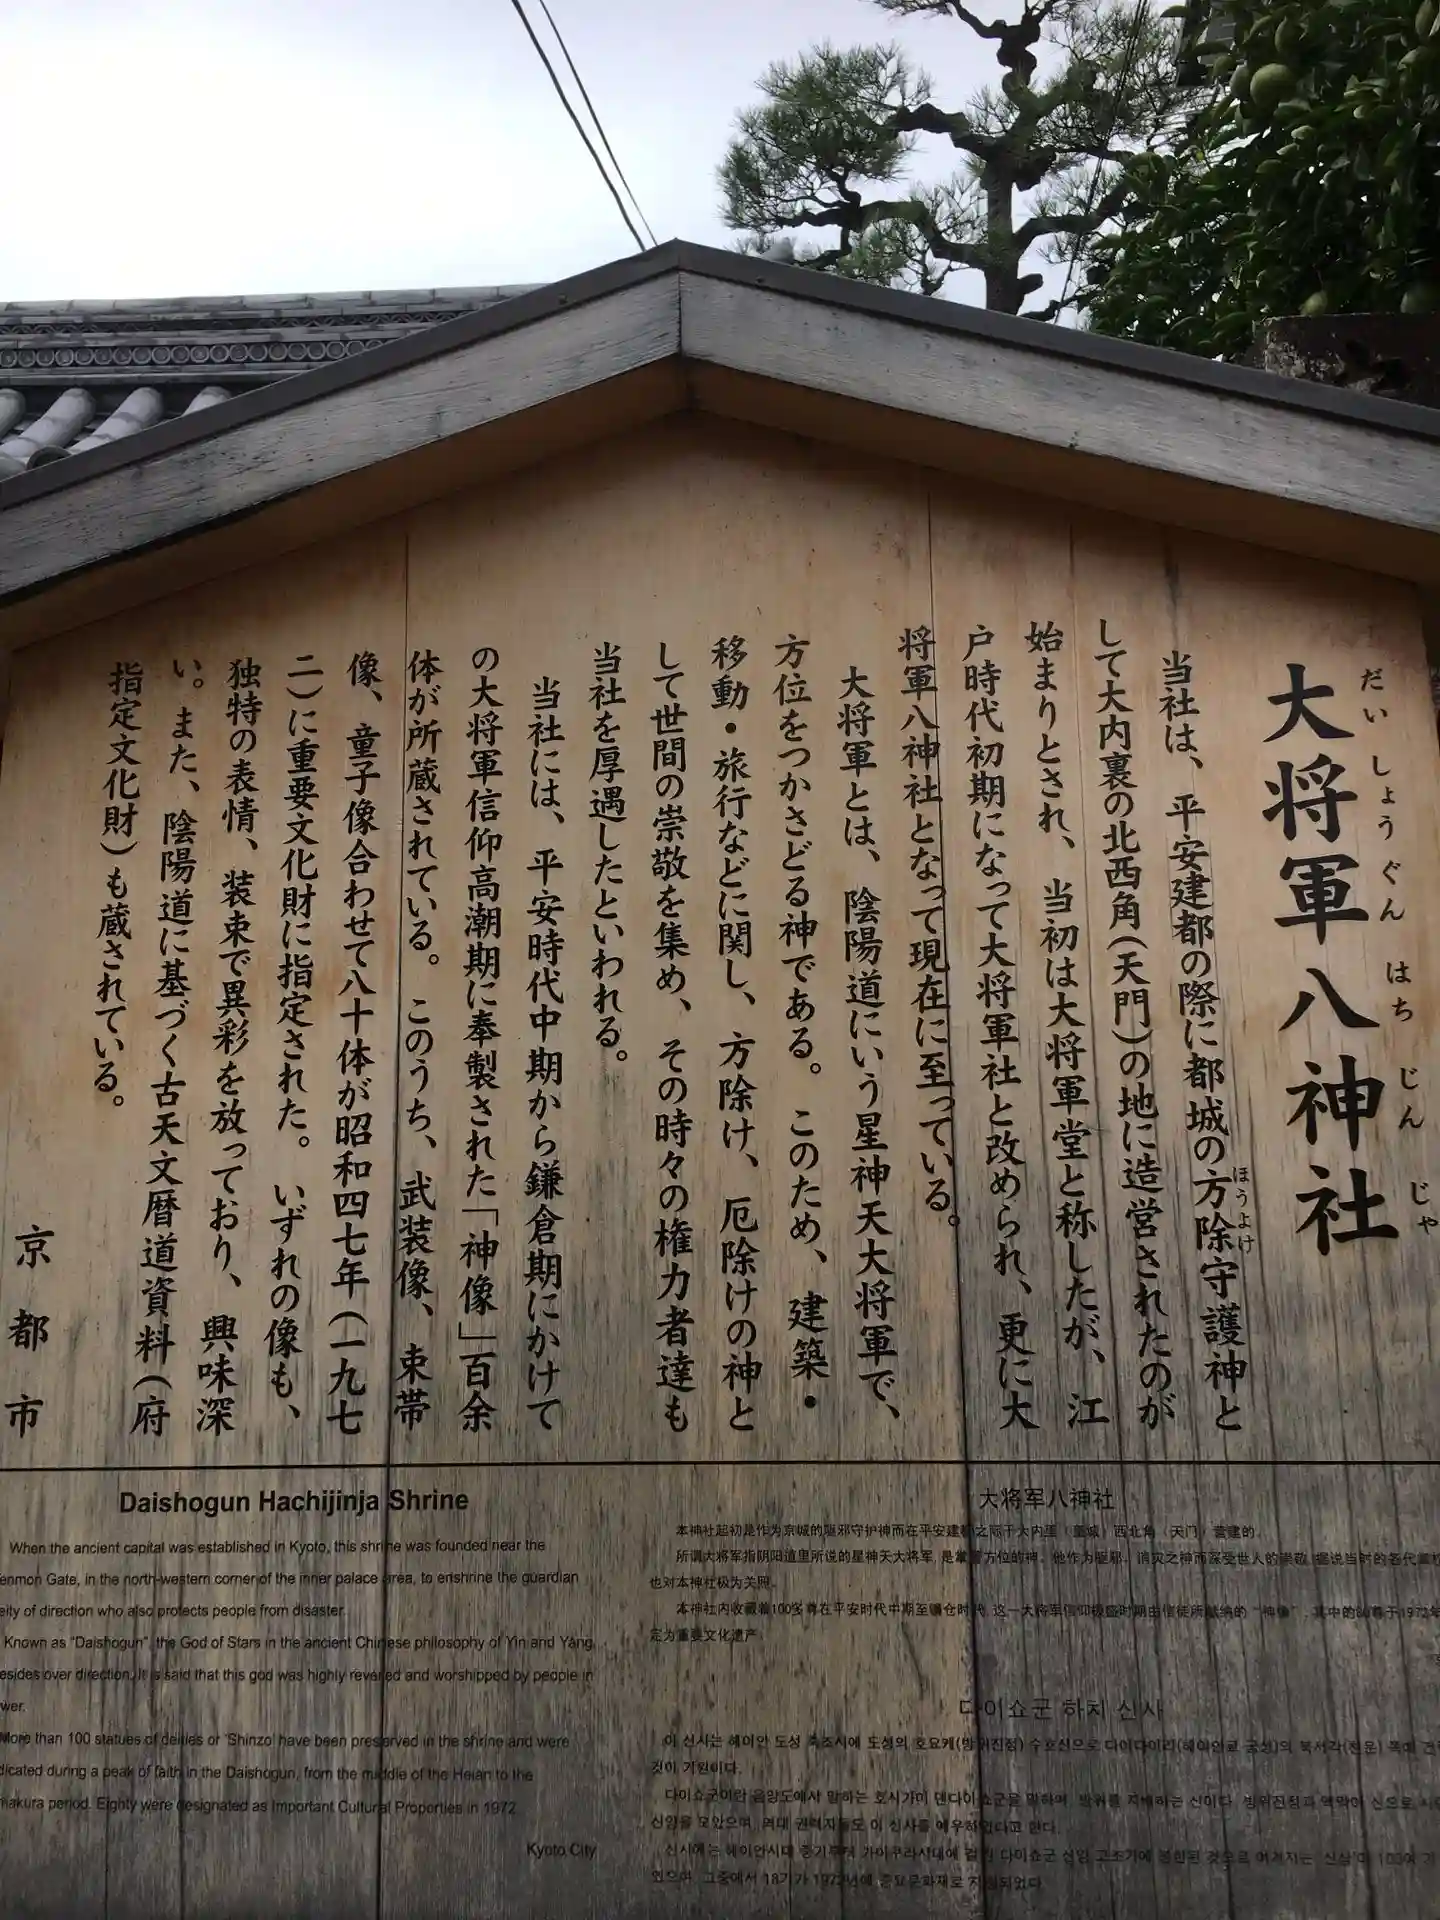 大将軍八神社
だいしょうぐん はち じん じゃ
当社は、平安建都の際に都城の方除守護神と
ほうよけ
して大内裏の北西角(天門)の地に造営されたのが
始まりとされ、当初は大将軍堂と称したが、江
戸時代初期になって大将軍社と改められ、更に大
将軍八神社となって現在に至っている。
大将軍とは、陰陽道にいう星神天大将軍で、
方位をつかさどる神である。このため、建築・
移動・旅行などに関し、方除け、厄除けの神と
して世間の崇敬を集め、その時々の権力者達も
当社を厚遇したといわれる。
当社には、平安時代中期から鎌倉期にかけて
の大将軍信仰高潮期に奉製された「神像」百余
体が所蔵されている。このうち、武装像、束帯
像、童子像合わせて八十体が昭和四七年(一九七
二)に重要文化財に指定された。いずれの像も、
独特の表情、装束で異彩を放っており、興味深
い。また、陰陽道に基づく古天文暦道資料(府
指定文化財)も蔵されている。
京都市
Daishogun Hachijinja Shrine
When the ancient capital was established in Kyoto, this shrine was founded near the
enmon Gate, in the north-western corner of the inner palace area, to enshrine the guardian
eity of direction who also protects people from disaster.
Known as "Daishogun", the God of Stars in the ancient Chinese philosophy of Yin and Yang,
esides over direction. It is said that this god was highly revered and worshipped by people in
wer.
More than 100 statues of deities or 'Shinzo' have been preserved in the shrine and were
dicated during a peak of faith in the Daishogun, from the middle of the Heian to the
makura period. Eighty were designated as Important Cultural Properties in 1972.
Kyoto City
大将军八神社
本神社起初是作为京城的驱邪守护神而在平安建都之际于大内里(皇城)西北角(天门)营建的。
所谓大将军指阴阳道里所说的星神天大将军,是掌管方位的神。他作为驱邪、消灾之神而深受世人的崇敬,据说当时的各代掌权
也对本神社极为关照。
本神社内收藏着100多尊在平安时代中期至镰仓时代,这一大将军信仰极盛时期由信徒所献纳的"神像",其中的80尊于1972年
定为重要文化遗产。
다이쇼군 하치 신사
이 신사는 헤이안 도성 축조시에 도성의 호요케(방위진정) 수호신으로 다이다이리(헤이안쿄 궁성)의 북서각(천문)
것이 기원이다.
다이쇼군이란 음양도에서 말하는 호시가미 덴다이쇼군을 말하며, 방위를 지배하는 신이다.
신앙을 모았으며, 역대 권력자들도 이 신사를 예우하였다고 한다.
신사에는 헤이안시대 중기부터 가마쿠라시대에 걸친 다이쇼군 신앙 고조기에